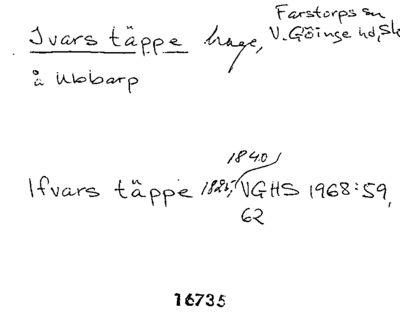 Farstorps sn
Ivars täppe hage, V. Göinge hd, Sk
å Ubbarp
1840
Ifvars täppe 1825, VGHS 1968:59,
62
16735